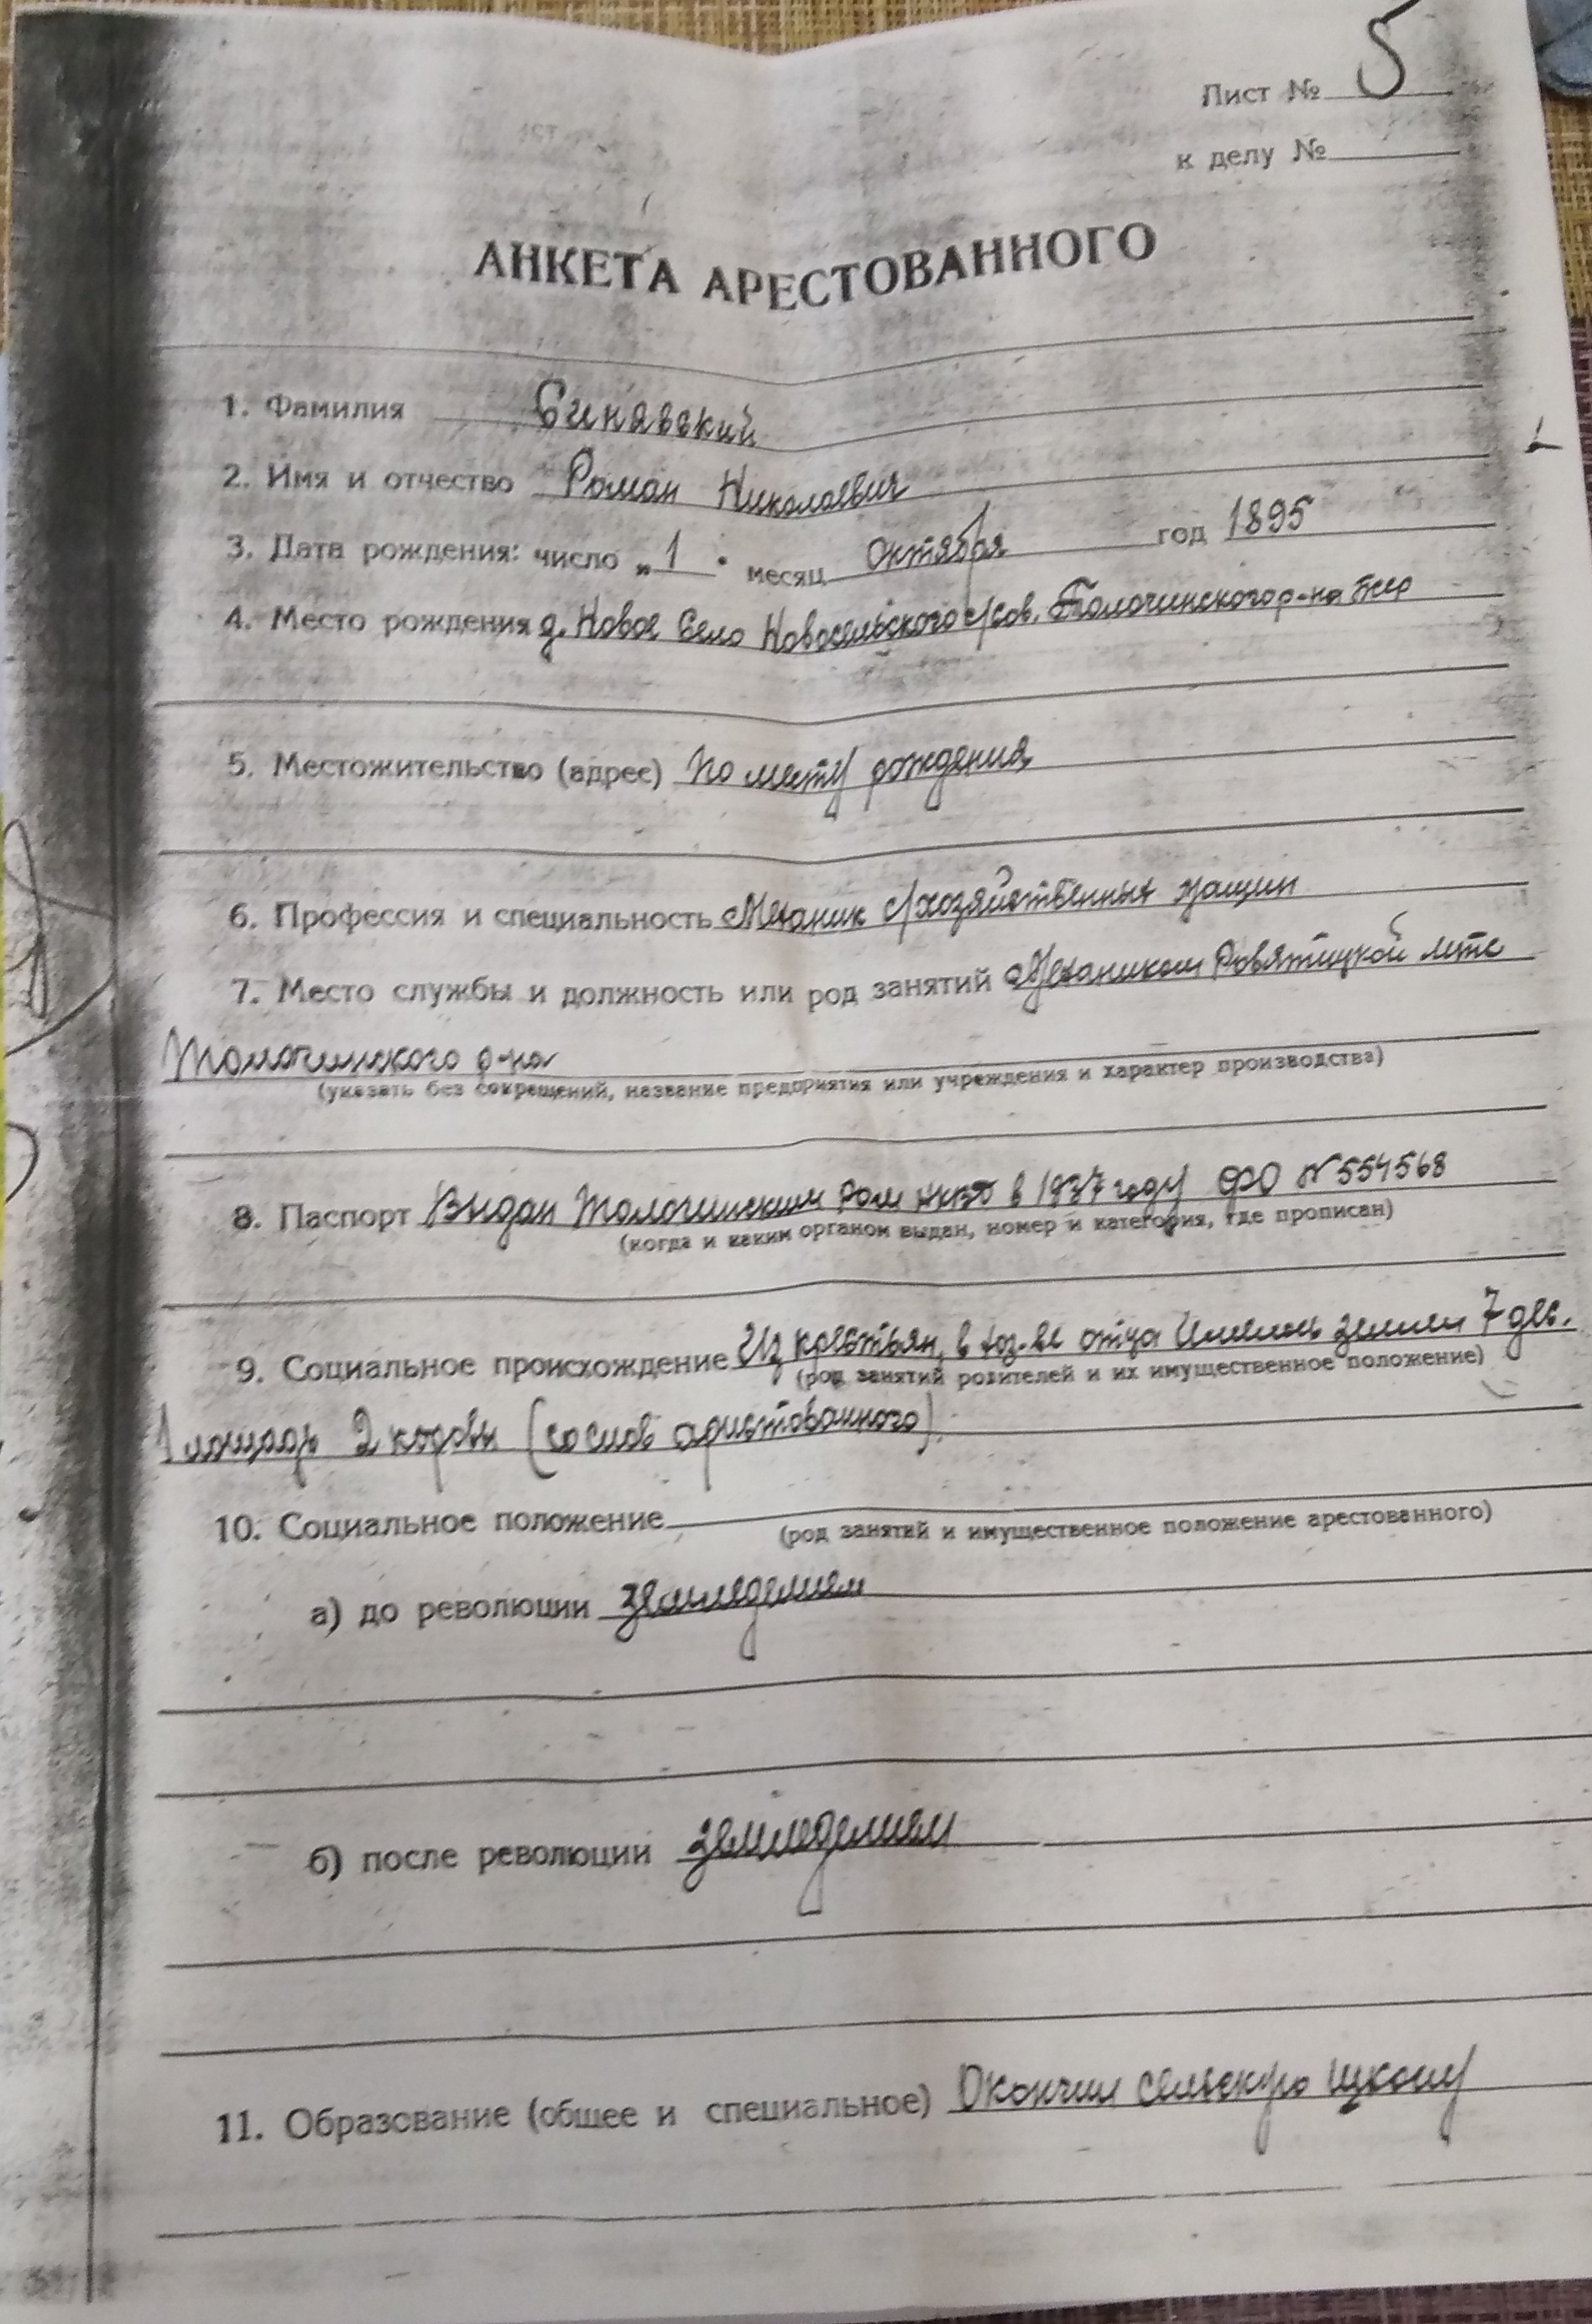 Лист № 5
к делу №
АНКЕТА АРЕСТОВАННОГО
1. Фамилия Синявский
2. Имя и отчество Роман Николаевич
3. Дата рождения: число „1" месяц Октября год 1895
4. Место рождения д. Новое Село Новосельского с/сов. Толочинского р-на
5. Местожительство (адрес) По месту рождения
6. Профессия и специальность Механик с/хозяйственных машин
7. Место службы и должность или род занятий Механиком мтс
Толочинского р-на
(указать без сокращений, название предприятия или учреждения и характер производства)
8. Паспорт Выдан Толочинским Ром НКВД в 1937 году ФО № 554568
(когда и каким органом выдан, номер и категория, где прописан)
9. Социальное происхождение Из крестьян, в хоз-ве отца Имелось земли 7 дес.
(род занятий родителей и их имущественное положение)
1 лошадь 2 коровы (со слов арестованного).
10. Социальное положение
(род занятий и имущественное положение арестованного)
а) до революции земледелием
б) после революции земледелием
11. Образование (общее и специальное) Окончил сельскую школу